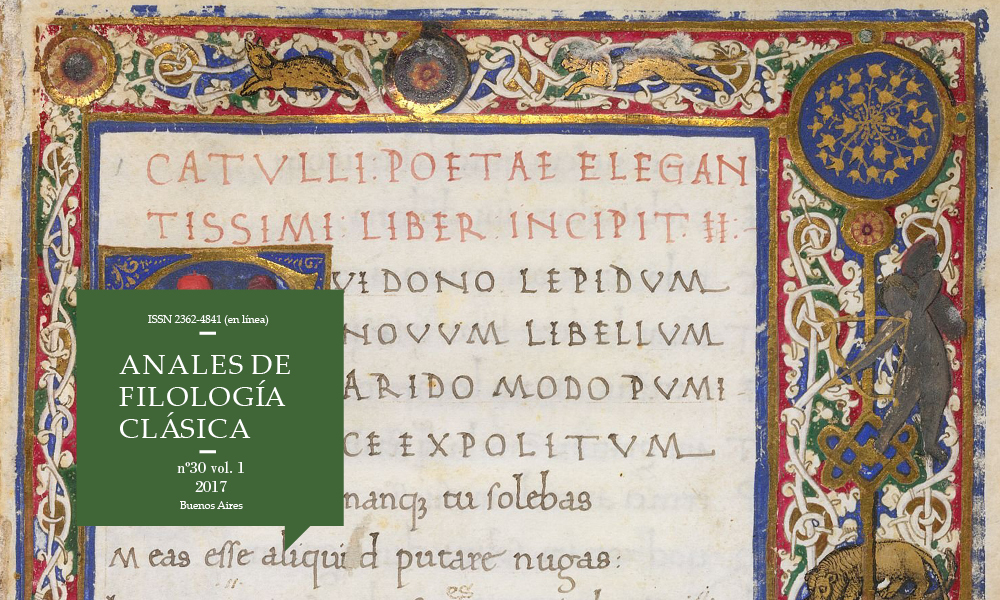 CATVLLI: POETAE ELEGAN
TISSIMI LIBER INCIPIT II:-
VI DONO LEPIDVM
NOVVM LIBELLVM
ARIDO MODO PVMI
CE EXPOLITVM
manqꝫ tu solebas
Meas esse aliquid putare nugas:
ISSN 2362-4841 (en línea)
ANALES DE
FILOLOGÍA
CLÁSICA
nº30 vol. 1
2017
Buenos Aires